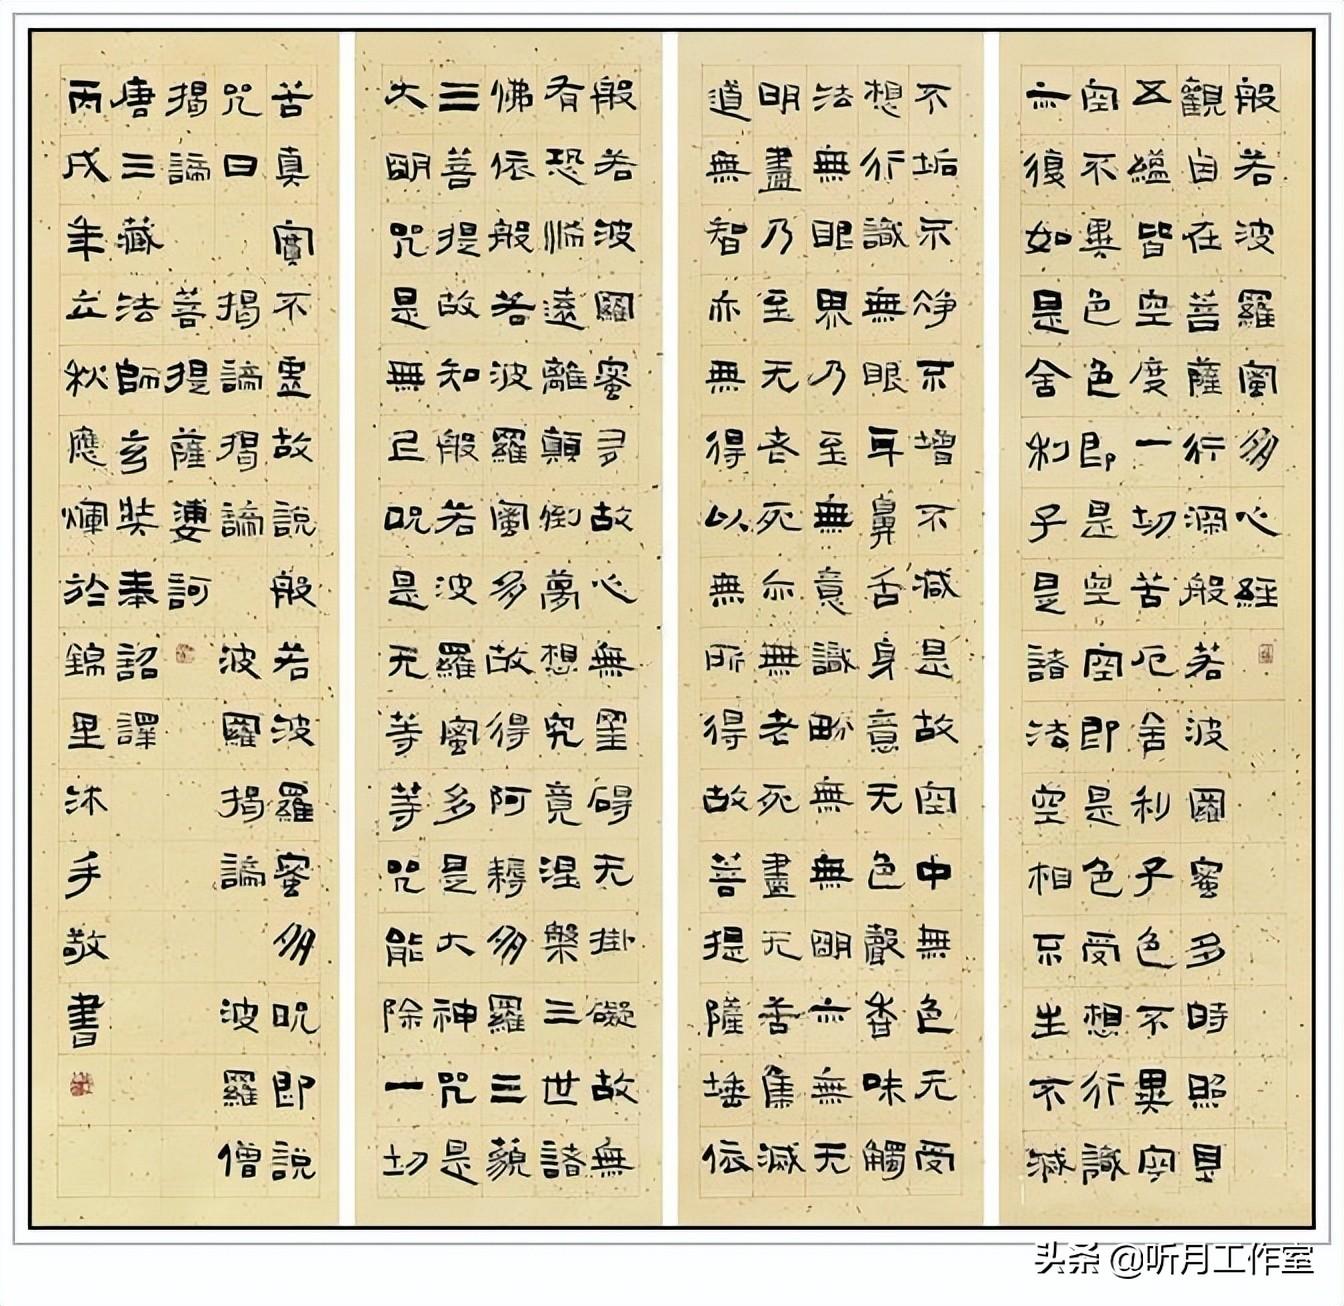 般若波羅蜜多心經
觀自在菩薩行深般若波羅蜜多時照見
五蘊皆空度一切苦厄舍利子色不異空
空不異色色即是空空即是色受想行識
亦復如是舍利子是諸法空相不生不滅
不垢不淨不增不減是故空中無色无受
想行識無眼耳鼻舌身意无色聲香味觸
法無眼界乃至無意識界無無明亦無无
明盡乃至无老死亦無老死盡无苦集滅
道無智亦無得以無所得故菩提薩埵依
般若波羅蜜多故心無罣碍无掛礙故無
有恐怖遠離顛倒夢想究竟涅槃三世諸
佛依般若波羅蜜多故得阿耨多羅三藐
三菩提故知般若波羅蜜多是大神咒是
大明咒是無上呪是无等等咒能除一切
苦真實不虛故說般若波羅蜜多呪即說
咒曰 揭諦揭諦 波羅揭諦 波羅僧
揭諦 菩提薩婆訶
唐三藏法師玄奘奉詔譯
丙戌年立秋應煇於錦里沐手敬書
头条 @听月工作室